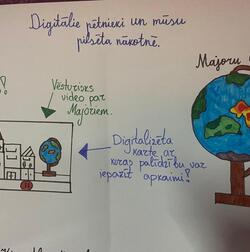 Digitālie pētnieki un mūsu
pilsēta nākotnē.
Majoru
!
Vēsturisks
video par
Majoriem.
Digitalizēta
karte ar
kuras palīdzību var
iepazīt apkaimi!